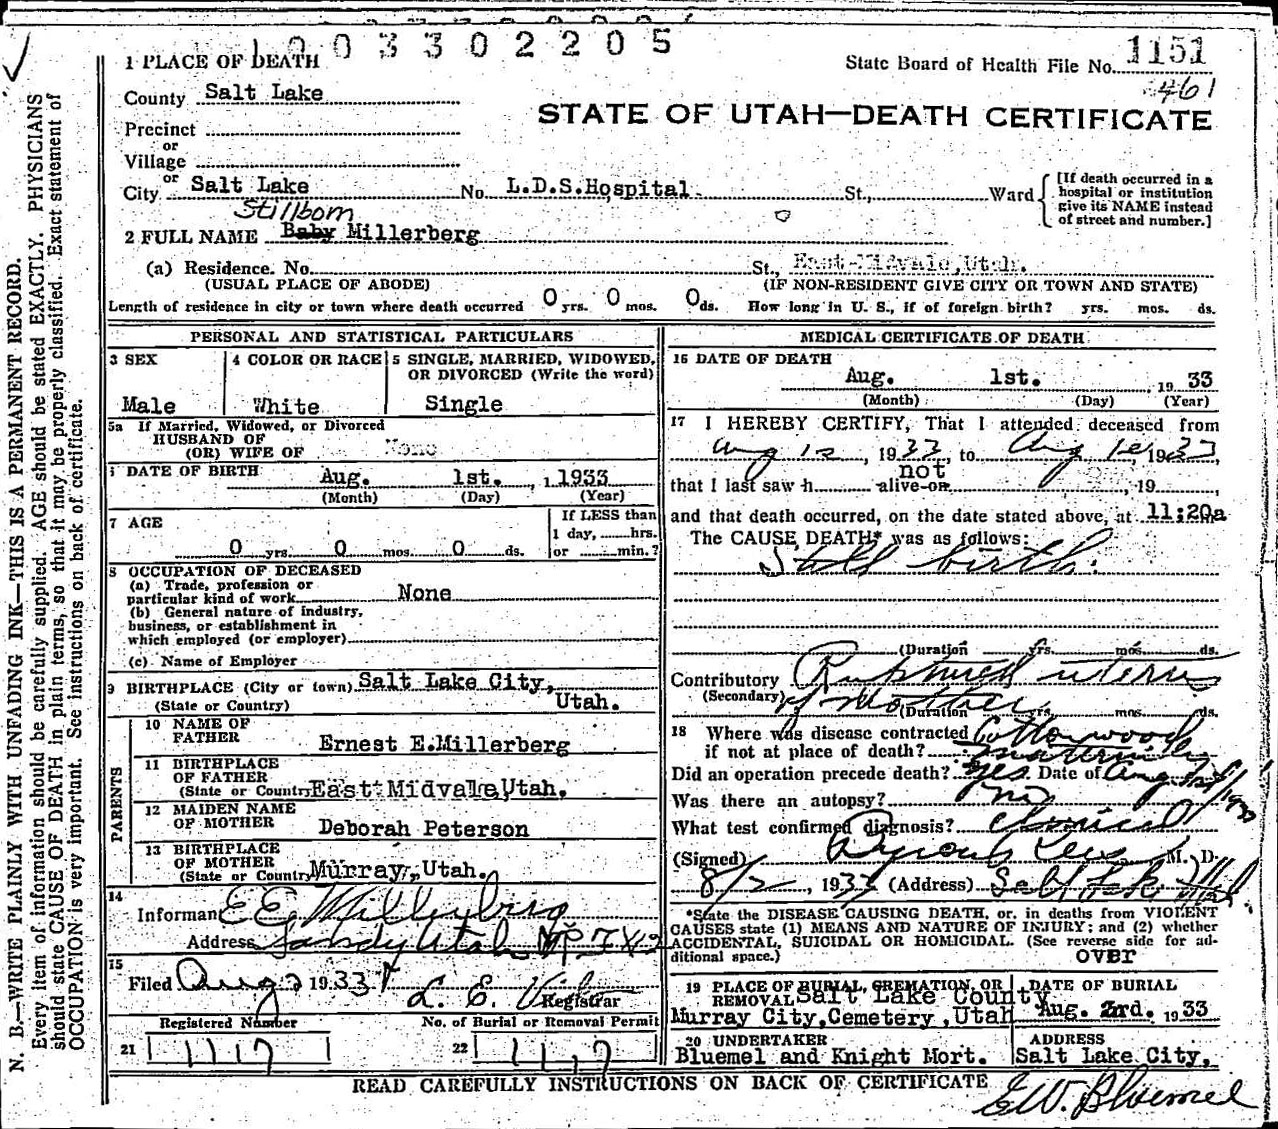 1003302205
1 PLACE OF DEATH
State Board of Health File No. 1151
461
County Salt Lake
STATE OF UTAH—DEATH CERTIFICATE
Precinct
or
Village
or
City Salt Lake No. L.D.S.Hospital St., Ward
[If death occurred in a hospital or institution give its NAME instead of street and number.]
Stillborn
2 FULL NAME Baby Millerberg
(a) Residence. No. St., East Midvale, Utah.
(USUAL PLACE OF ABODE) (IF NON-RESIDENT GIVE CITY OR TOWN AND STATE)
Length of residence in city or town where death occurred 0 yrs. 0 mos. 0 ds. How long in U. S., if of foreign birth? yrs. mos. ds.
PERSONAL AND STATISTICAL PARTICULARS
3 SEX
Male
4 COLOR OR RACE
White
5 SINGLE, MARRIED, WIDOWED,
OR DIVORCED (Write the word)
Single
5a If Married, Widowed, or Divorced
HUSBAND OF
(OR) WIFE OF None
DATE OF BIRTH Aug. 1st., 1933
(Month) (Day) (Year)
7 AGE
0 yrs. 0 mos. 0 ds.
If LESS than
1 day, hrs.
or min.?
8 OCCUPATION OF DECEASED
(a) Trade, profession or
particular kind of work None
(b) General nature of industry,
business, or establishment in
which employed (or employer)
(c) Name of Employer
9 BIRTHPLACE (City or town) Salt Lake City,
(State or Country) Utah.
PARENTS
10 NAME OF
FATHER Ernest E.Millerberg
11 BIRTHPLACE
OF FATHER
(State or Country East Midvale, Utah.
12 MAIDEN NAME
OF MOTHER Deborah Peterson
13 BIRTHPLACE
OF MOTHER
(State or Country Murray, Utah.
14
Informant E E Millerberg
Address Sandy Utah
15
Filed Aug 2 1933 L. E.
Registrar
Registered Number No. of Burial or Removal Permit
21 1117 22 1117
MEDICAL CERTIFICATE OF DEATH
16 DATE OF DEATH
Aug. 1st. 1933
(Month) (Day) (Year)
17 I HEREBY CERTIFY, That I attended deceased from
Aug 1s, 1933, to Aug 1s, 1933,
not
that I last saw h alive on , 19 ,
and that death occurred, on the date stated above, at 11:20a
The CAUSE DEATH* was as follows:
Still birth.
(Duration yrs. mos. ds.
Contributory Ruptured uterus
(Secondary) of Mother
(Duration yrs. mos. ds.
18 Where was disease contracted Cottonwood
if not at place of death? Maternity
Did an operation precede death? Yes. Date of Aug 1st
Was there an autopsy? no
What test confirmed diagnosis? clinical
(Signed) M. D.
8/2, 1933 (Address) Salt Lake Utah.
*State the DISEASE CAUSING DEATH, or, in deaths from VIOLENT
CAUSES state (1) MEANS AND NATURE OF INJURY; and (2) whether
ACCIDENTAL, SUICIDAL OR HOMICIDAL. (See reverse side for ad-
ditional space.) OVER
19 PLACE OF BURIAL, CREMATION, OR
REMOVAL Salt Lake County
Murray City, Cemetery, Utah
DATE OF BURIAL
Aug. 3rd. 1933
20 UNDERTAKER
Bluemel and Knight Mort.
ADDRESS
Salt Lake City,
READ CAREFULLY INSTRUCTIONS ON BACK OF CERTIFICATE
E.W. Bluemel
N. B.—WRITE PLAINLY WITH UNFADING INK—THIS IS A PERMANENT RECORD.
Every item of information should be carefully supplied. AGE should be stated EXACTLY. PHYSICIANS
should state CAUSE OF DEATH in plain terms, so that it may be properly classified. Exact statement of
OCCUPATION is very important. See instructions on back of certificate.